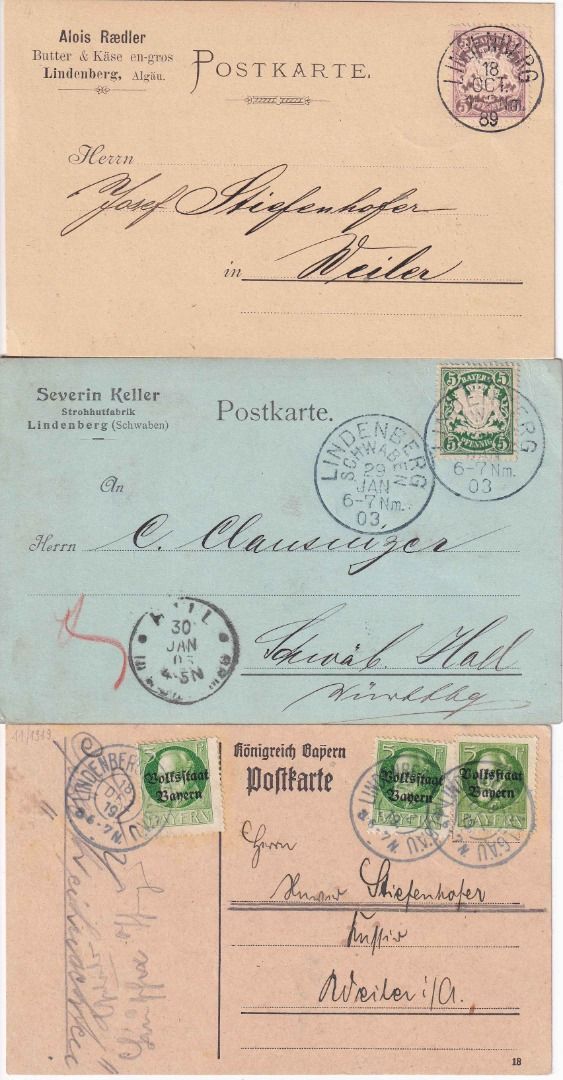 Alois Rædler
Butter & Käse en-gros
Lindenberg, Algäu.
POSTKARTE.
LINDENBERG
18
OCT.
Nm.
89
Herrn
Josef Stiefenhofer
in Weiler
Severin Keller
Strohhutfabrik
Lindenberg (Schwaben)
Postkarte.
BAYERN
5 5
PFENNIG
LINDENBERG
SCHWABEN
29
JAN
6-7 Nm.
03
6-7 Nm.
03
An
Herrn C. Clausinger
HALL
30
JAN
Schwäb. Hall
Württbg
11/1919
LINDENBERG
18
19
6-7 N.
5 Pf
Volksstaat
Bayern
BAYERN
Königreich Bayern
Postkarte
Volksstaat
Bayern
Volksstaat
Bayern
BAYERN
Herrn
Stiefenhofer
Weiler i/A.
18